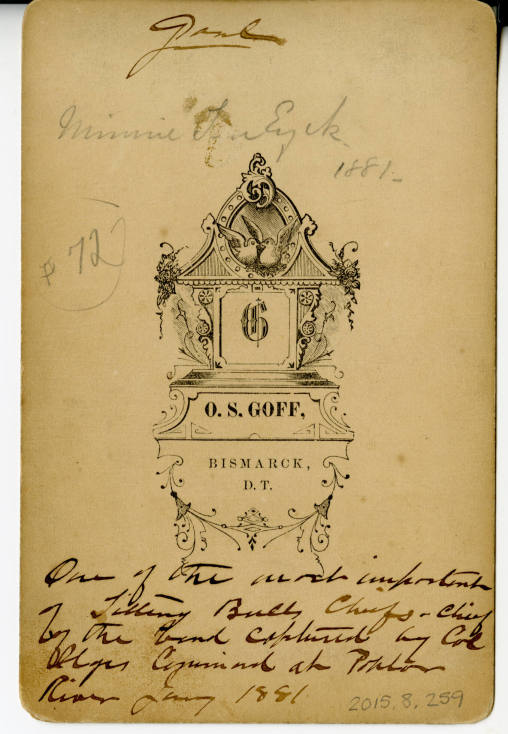 Gaul
Minnie Ten Eyck
1881_
72
G
O. S. GOFF,
BISMARCK,
D. T.
One of the most important
of Sitting Bulls Chiefs - Chief
of the band captured by Col
at Poplar
River Jany 1881
2015.8.259